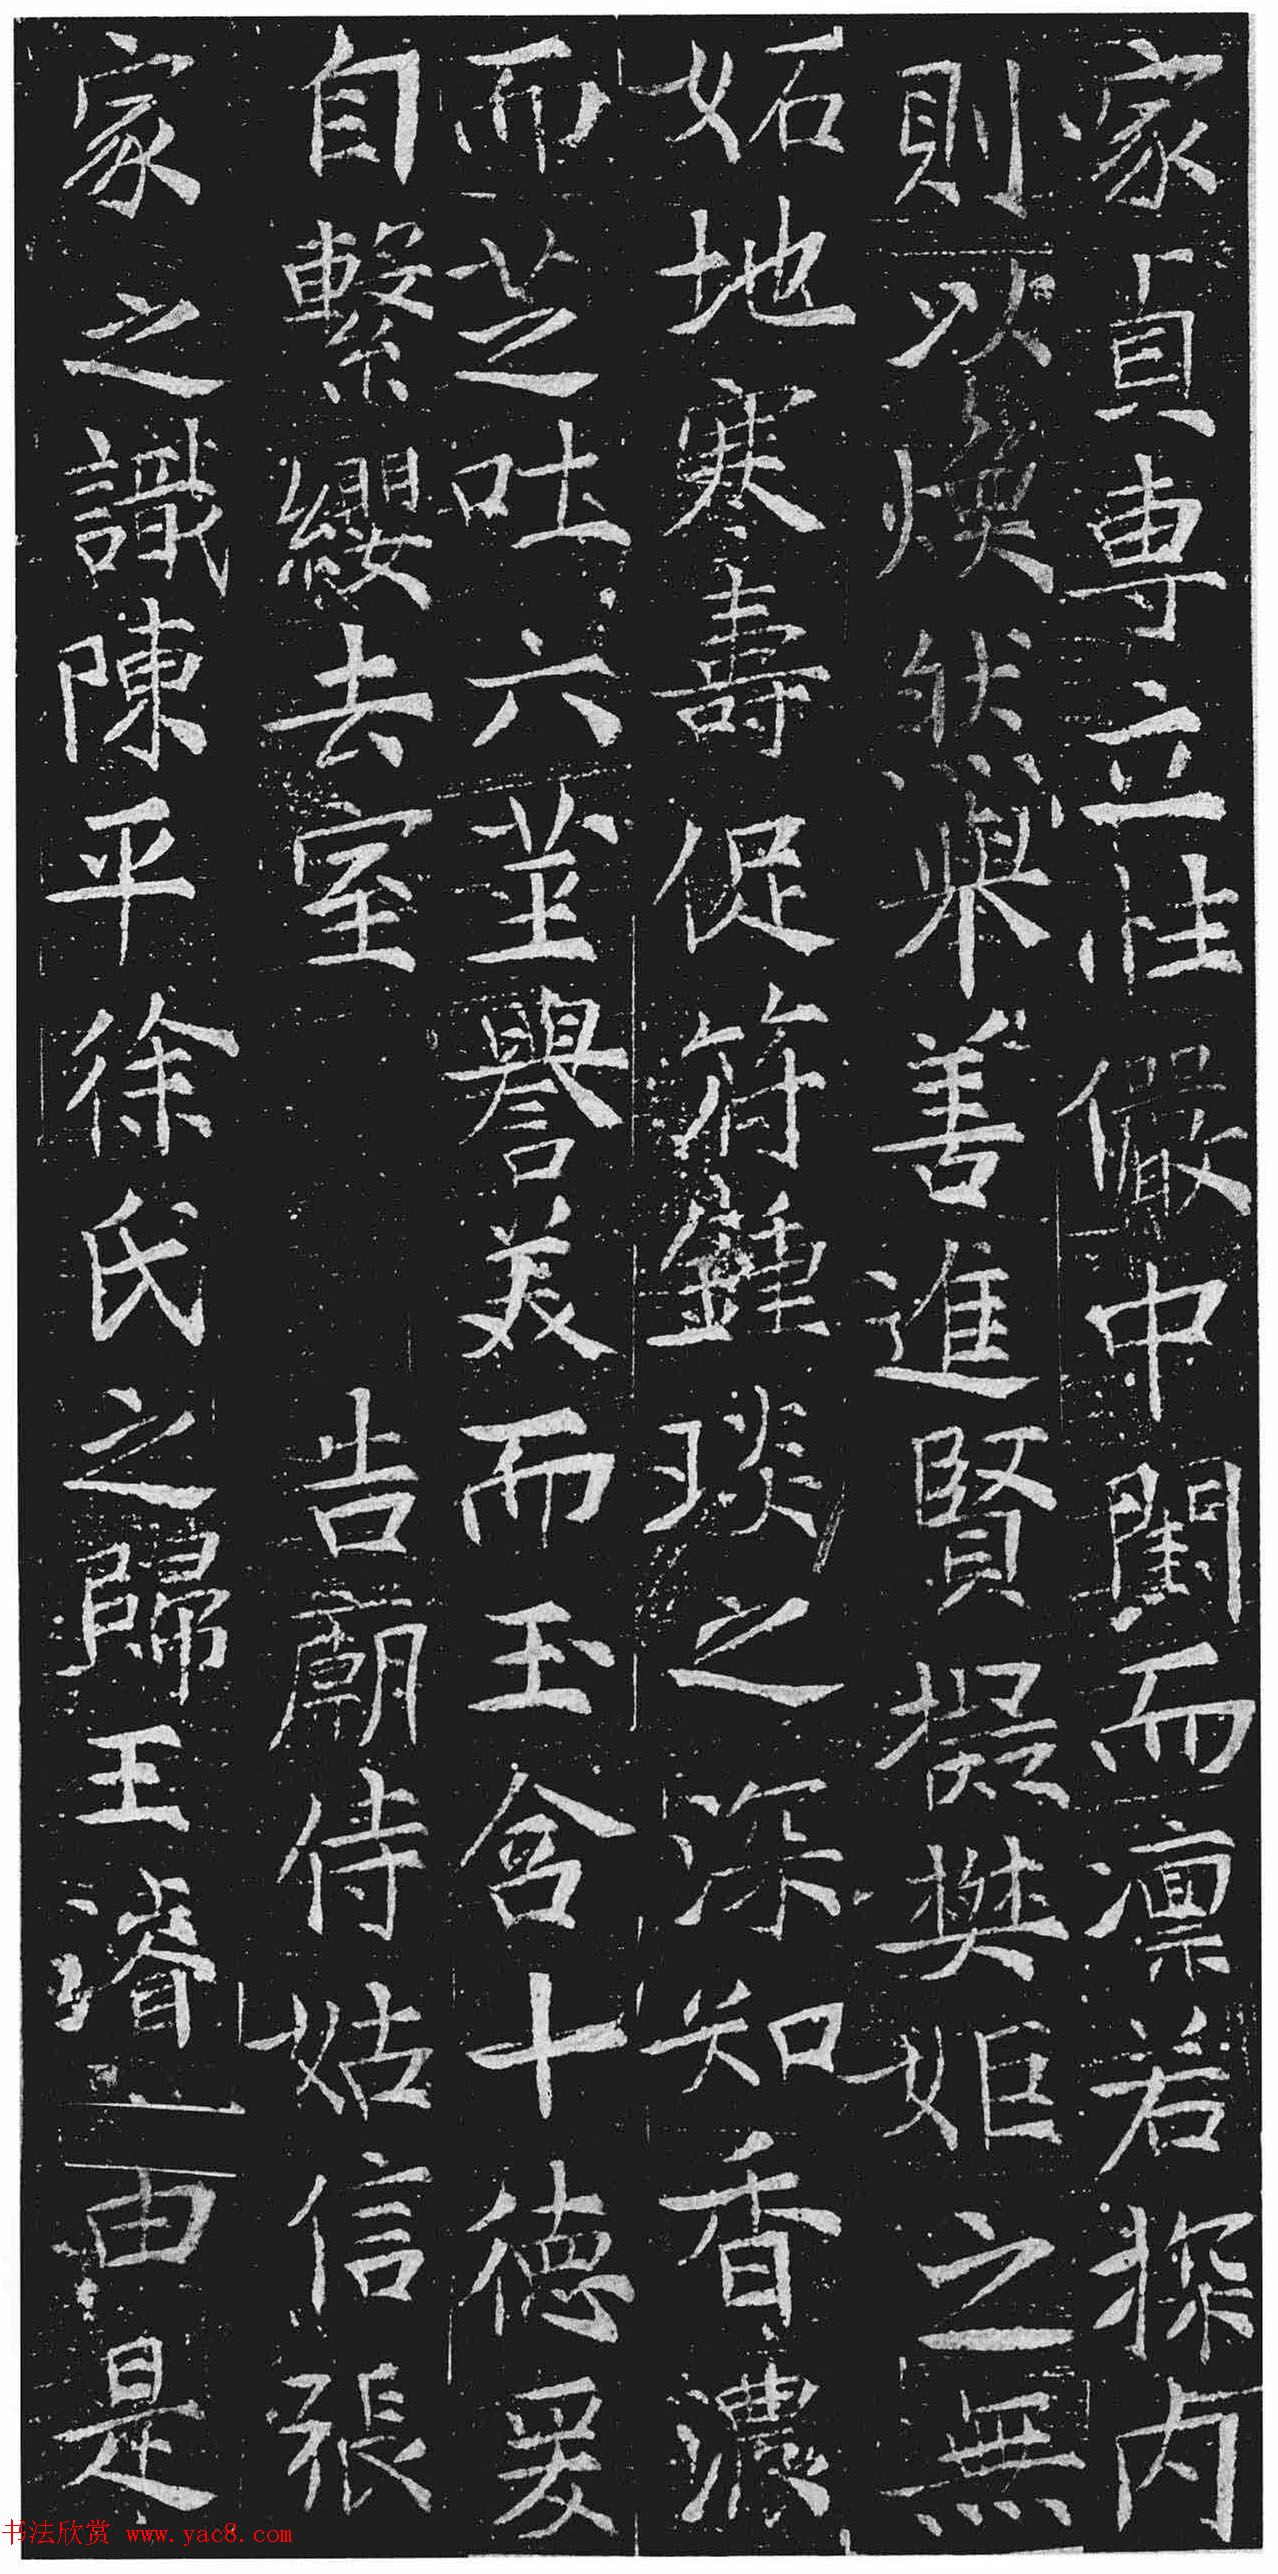 家貞専立性儼中闈而凛若探内
則以煥然舉善進賢擬樊姬之無
妬地寒壽促符鍾琰之深知香濃
而芝吐六莖譽美而玉含十德爰
自繫纓去室告廟侍姑信張
家之識陳平徐氏之歸王濬由是
书法欣赏 www.yac8.com